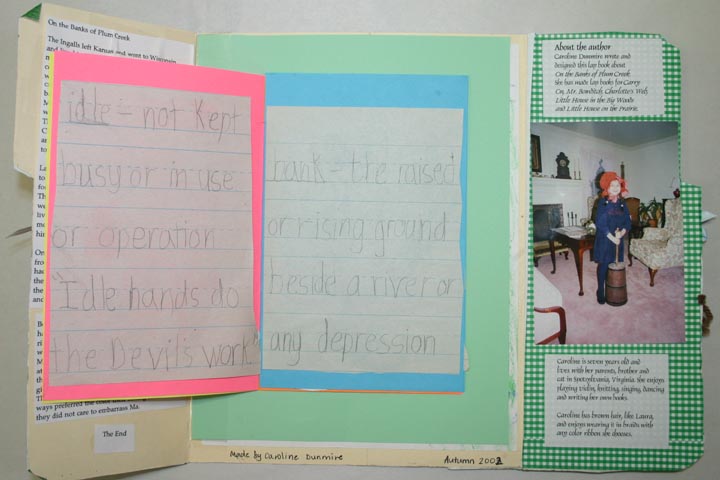 On the Banks of Plum Creek
The Ingalls left Kansas and went to Wisconsin
ways preferred
they did not care to embarrass Ma.
The End
idle – not kept
busy or in use
or operation
"Idle hands do
the Devil's work"
bank – the raised
or rising ground
beside a river or
any depression
Made by Caroline Dunmire
Autumn 2002
About the author
Caroline Dunmire wrote and
designed this lap book about
On the Banks of Plum Creek.
She has made lap books for Carry
On, Mr. Bowditch, Charlotte's Web,
Little House in the Big Woods
and Little House on the Prairie.
Caroline is seven years old and
lives with her parents, brother and
cat in Spotsylvania, Virginia. She enjoys
playing violin, knitting, singing, dancing
and writing her own books.
Caroline has brown hair, like Laura,
and enjoys wearing it in braids with
any color ribbon she chooses.